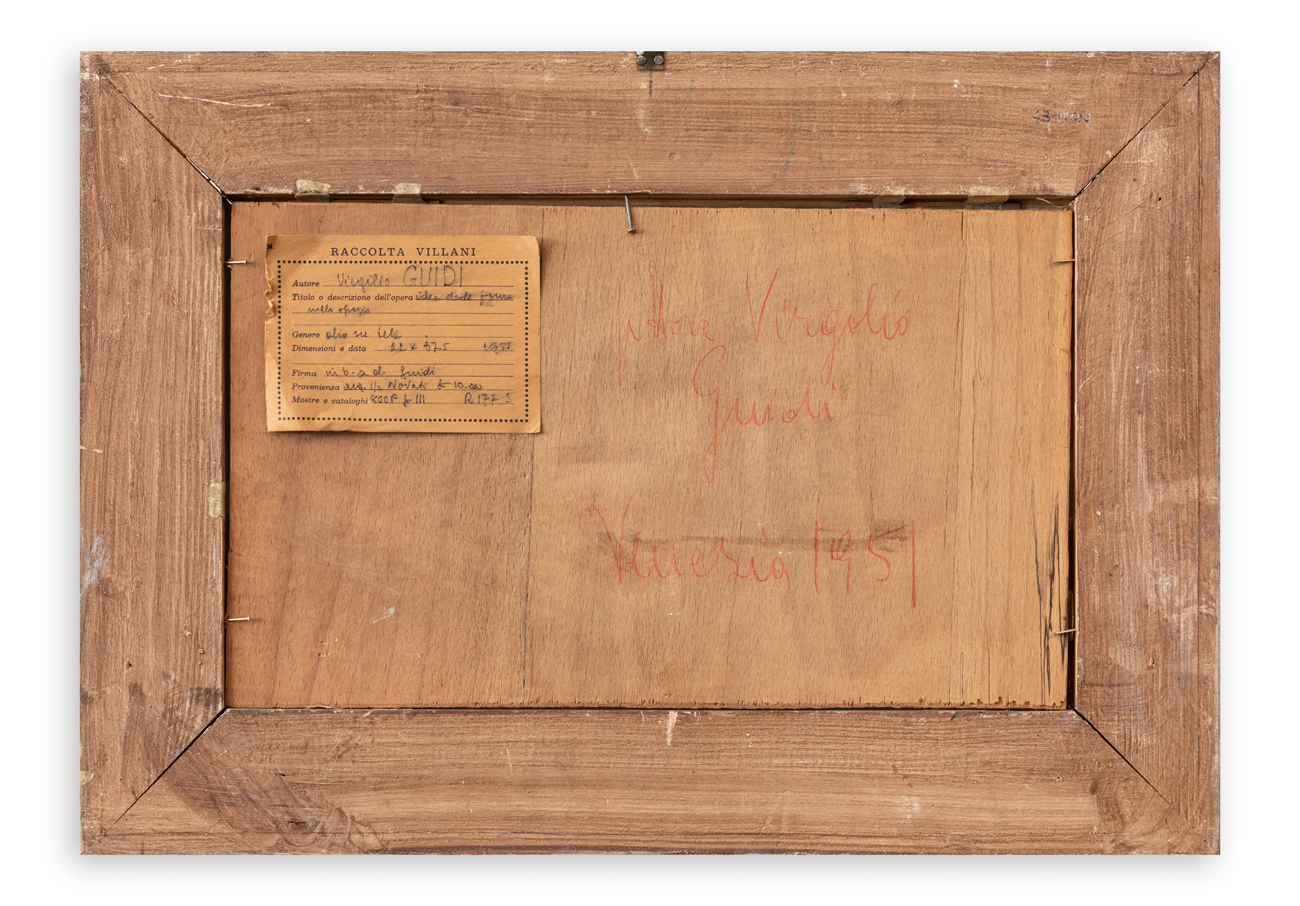 N.
RACCOLTA VILLANI
Autore Virgilio GUIDI
Titolo o descrizione dell'opera idea delle figure
nello spazio
Genere olio su tela
Dimensioni e data 22 x 37,5 1951
Firma in b-a d. Guidi
Provenienza acq. Novati
Mostre e cataloghi 800P p. III R 177 S
pittore Virgilio
Guidi
Venezia 1951